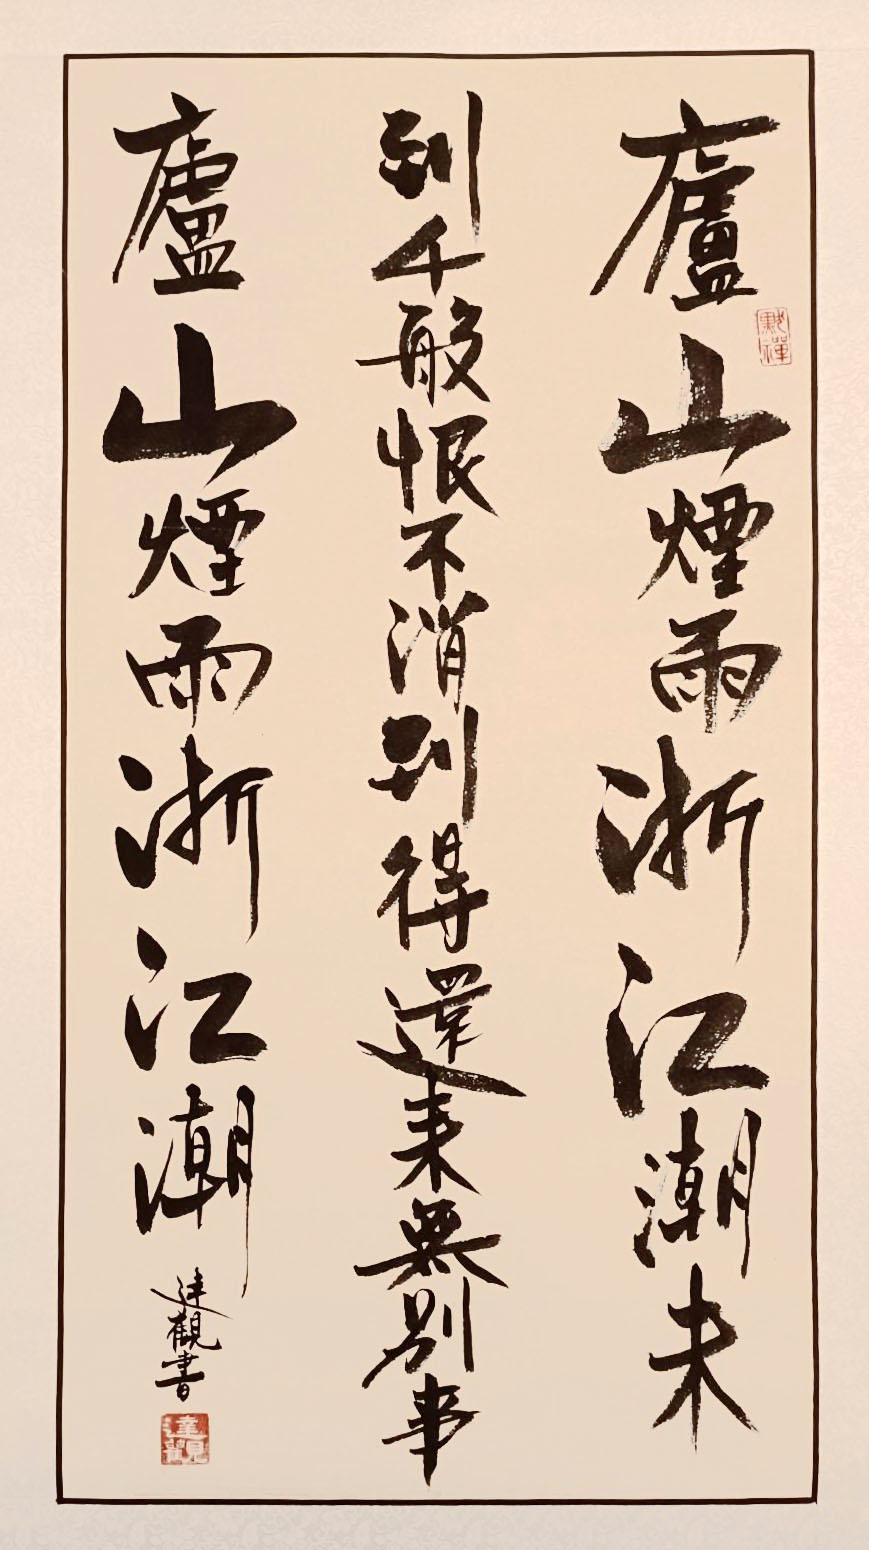 廬山煙雨浙江潮未
到千般恨不消到得還來無別事
廬山煙雨浙江潮
達觀書
默禪
達觀